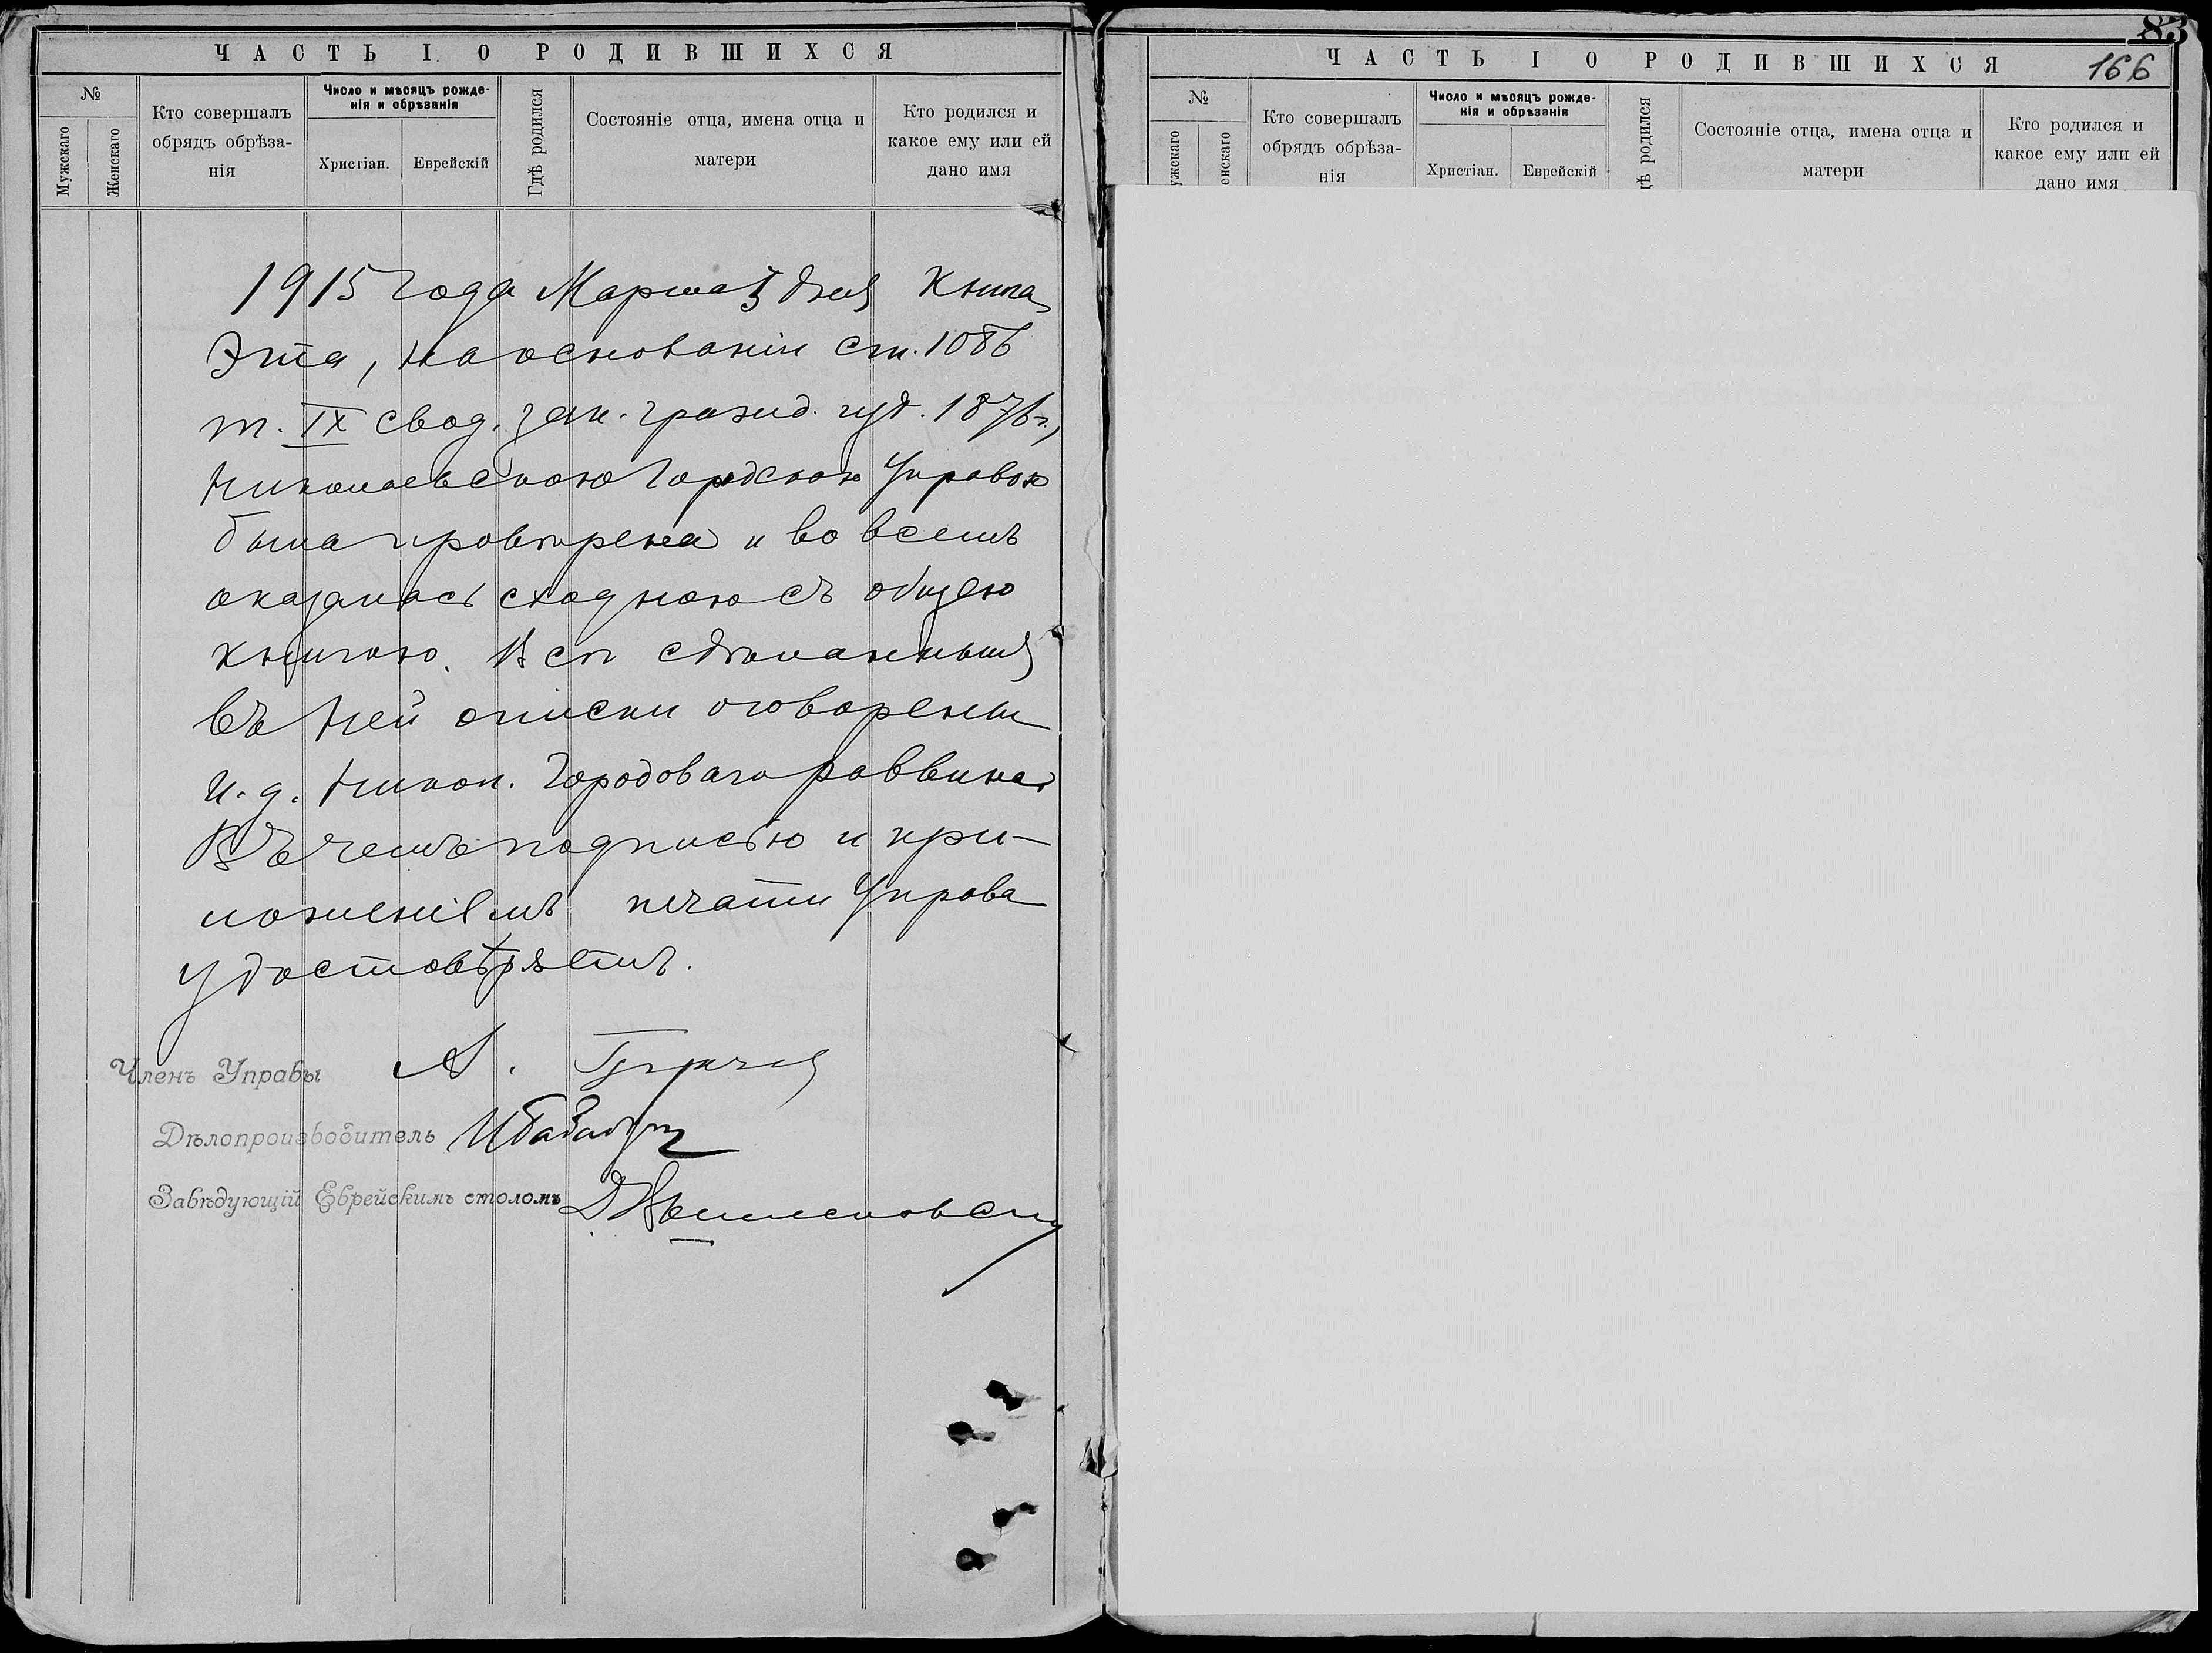 ЧАСТЬ I. О РОДИВШИХСЯ
№
Мужскаго
Женскаго
Кто совершалъ
обрядъ обрѣза-
нія
Число и мѣсяцъ рожде-
нія и обрѣзанія
Христіан.
Еврейскій
Гдѣ родился
Состояніе отца, имена отца и
матери
Кто родился и
какое ему или ей
дано имя
1915 года Марта 5 дня Книга
эта, на основаніи ст. 1086
т. IX свод. зак. гражд. изд. 1876 г.,
Николаевскою Городскою Управою
была провѣрена и во всемъ
оказалась сходною съ общею
книгою. Всѣ сдѣланныя
въ ней описки оговорены
И. д. Никол. Городоваго раввина
Въ чемъ подписью и при-
ложеніемъ печати Управа
удостовѣряетъ.
Членъ Управы А.
Дѣлопроизводитель
Завѣдующій Еврейскимъ столомъ
83
166
ЧАСТЬ I О РОДИВШИХСЯ
№
ужскаго
енскаго
Кто совершалъ
обрядъ обрѣза-
нія
Число и мѣсяцъ рожде-
нія и обрѣзанія
Христіан.
Еврейскій
ѣ родился
Состояніе отца, имена отца и
матери
Кто родился и
какое ему или ей
дано имя